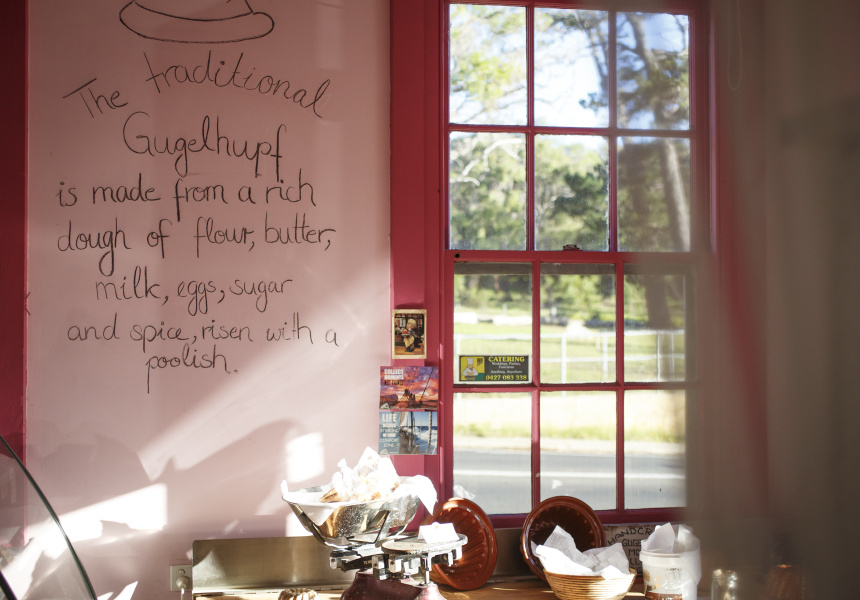 The traditional
Gugelhupf
is made from a rich
dough of flour, butter,
milk, eggs, sugar
and spice, risen with a
poolish.
CATERING
0427 083 338
COLLECT
MOMENTS
LIFE
HANDCR
GUGE